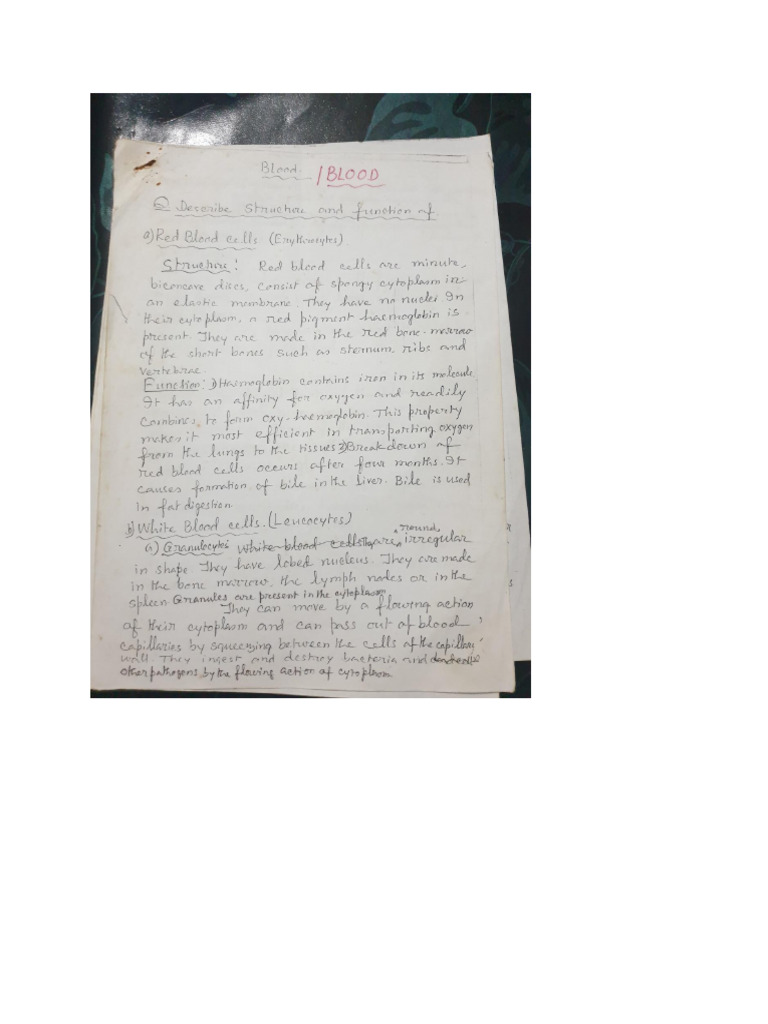 Blood. / BLOOD
Q Describe Structure and function of
a) Red Blood cells (Erythrocytes)
Structure: Red blood cells are minute,
biconcave discs, consist of spongy cytoplasm in
an elastic membrane. They have no nuclei In
their cytoplasm, a red pigment haemoglobin is
present. They are made in the red bone-marrow
of the short bones such as sternum, ribs and
vertebrae.
Function: 1) Haemoglobin contains iron in its molecule.
It has an affinity for oxygen and readily
combines, to form oxy-haemoglobin. This property
makes it most efficient in transporting oxygen
from the lungs to the tissues 2) Breakdown of
red blood cells occurs after four months. It
causes formation of bile in the liver. Bile is used
in fat digestion.
b) White Blood cells. (Leucocytes)
round
a) Granulocytes White blood cells are irregular
in shape They have lobed nucleus. They are made
in the bone marrow, the lymph nodes or in the
spleen Granules are present in the cytoplasm
They can move by a flowing action
of their cytoplasm and can pass out of blood
capillaries by squeezing between the cells of the capillary
wall. They ingest and destroy bacteria and dead cells
other pathogens by the flowing action of cytoplasm